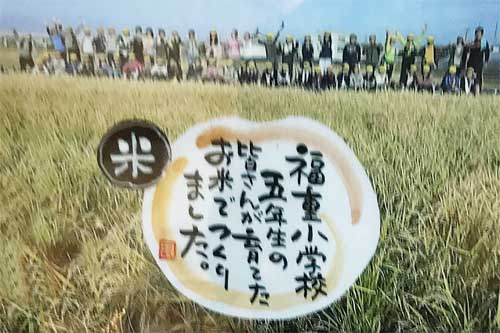 米
福重小学校
五年生の
皆さんが育てた
お米でつくり
ました。